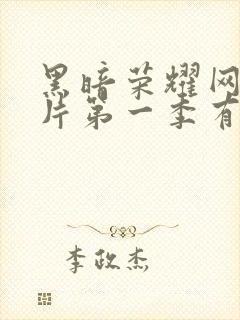 黑暗荣耀网
片第一季有
李政杰